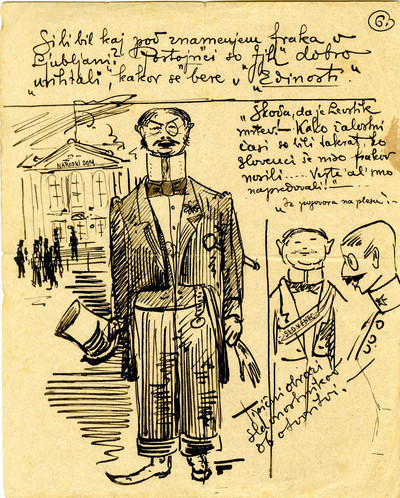 6.
Si li bil kaj pod znamenjem fraka v
Ljubljani? "Postojnčci so "jih" dobro
"urihtali", kakor se bere v "Edinosti"
"Škoda, da je Levstik
mrtev. – Kako žalostni
časi so bili takrat, ko
slovenci še niso frakov
nosili..... Veste al' smo
napredovali!"
"Iz govora na plesu".
NARODNI DOM
SLOVENEC
Tipični obrazi
slavnostnikov
ob otvoritvi.